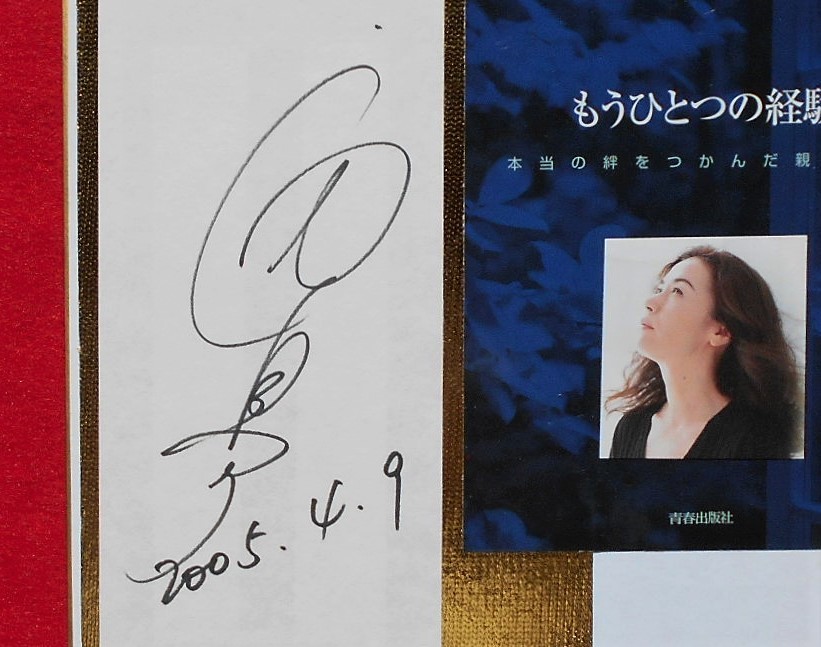 2005.4.9
もうひとつの経験
本当の絆をつかんだ親
青春出版社